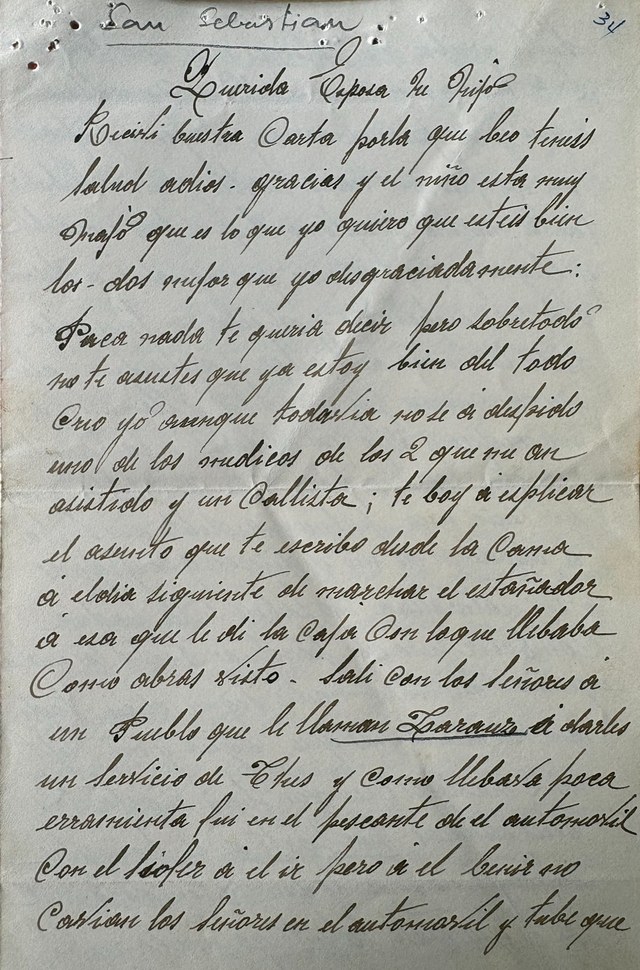 San Sebastian
34
Querida Esposa he hijo
Recivi buestra Carta porla que beo teneis
Salud adios - gracias y el niño esta muy
Majo que es lo que yo quiero que esteis bien
los - dos mejor que yo desgraciadamente:
Paca nada te queria decir pero sobretodo
no te asustes que ya estoy bien del todo
Creo yo aunque todavia nose á despido
uno de los medicos de los 2 que me an
asistido y un Callista; te boy á esplicar
el asunto que te escribo desde la Cama
á eldia siguiente de marchar el estañador
á esa que le di la Caja Con loque llebaba
Como abras visto - Sali Con los Señores á
un Pueblo que le llaman Zarauz á darles
un Servicio de Thes y Como llebava poca
erramienta fui en el pescante de el automovil
Con el siofer á el ir pero á el benir no
Cavian los Señores en el automovil y tube que